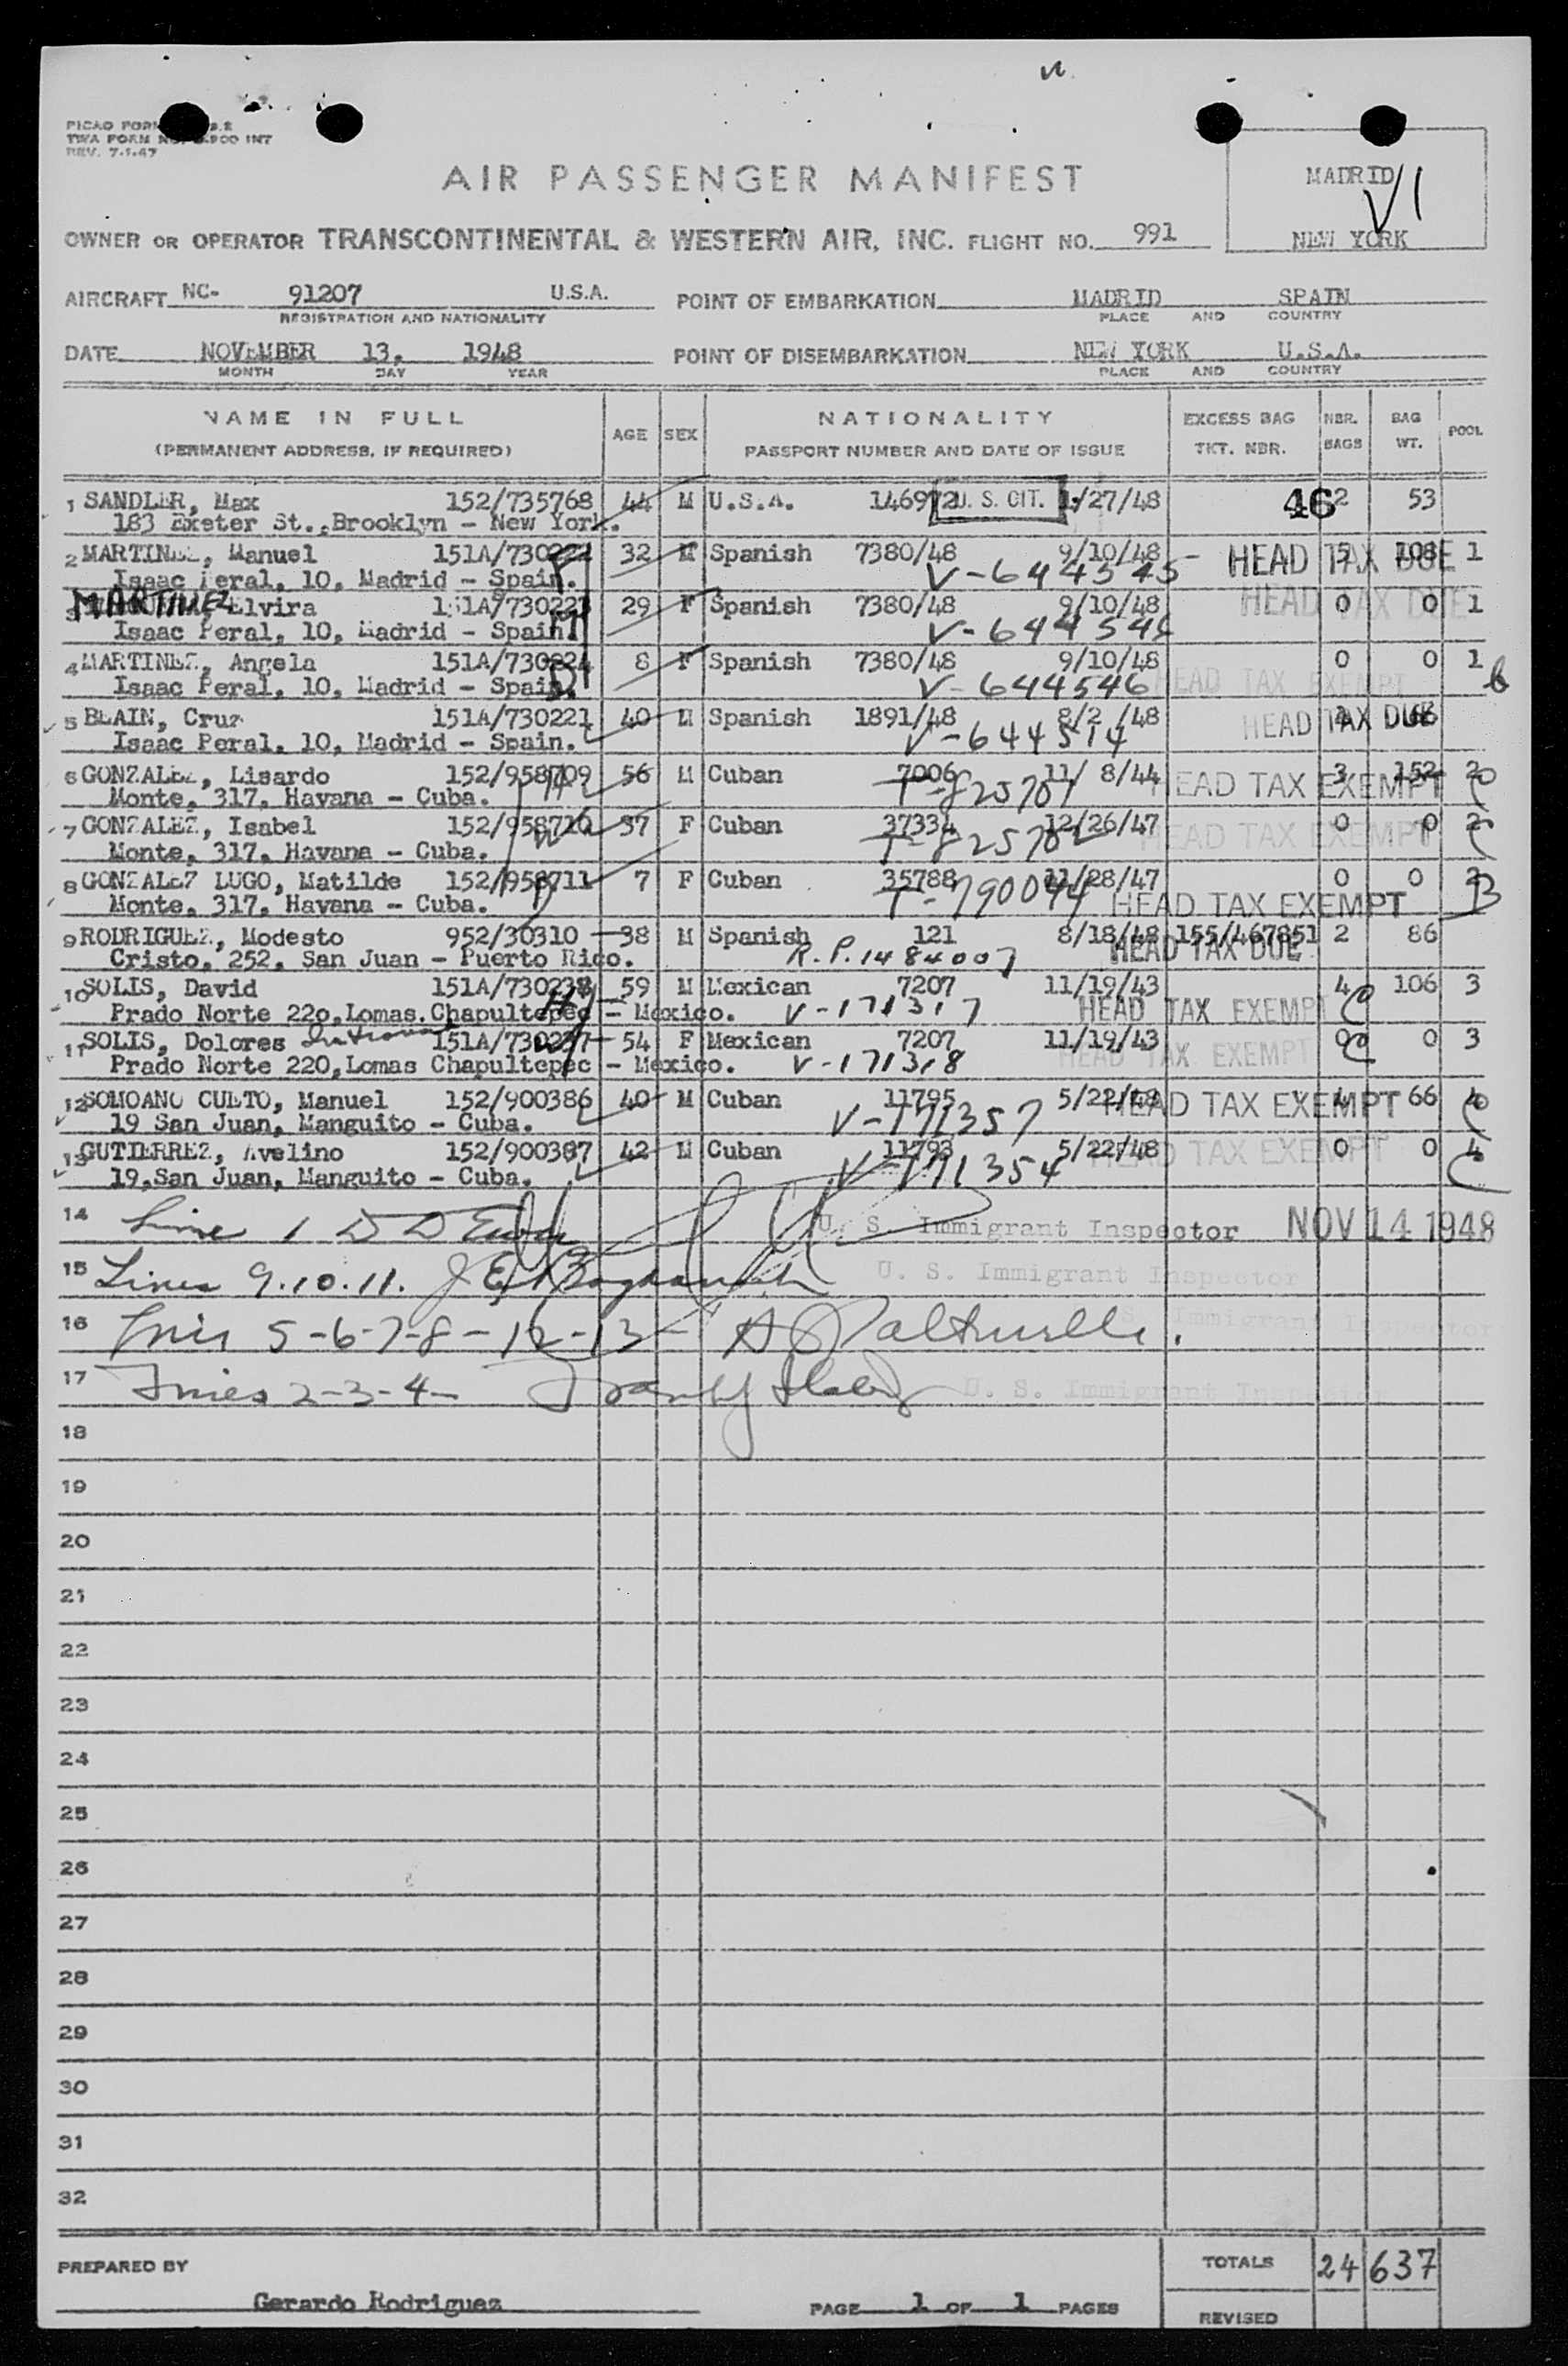 PICAO FORM
TWA FORM NO. 2.900 INT
REV. 7-1-47
AIR PASSENGER MANIFEST
MADRID
VI
NEW YORK
OWNER OR OPERATOR TRANSCONTINENTAL & WESTERN AIR, INC. FLIGHT NO. 991
AIRCRAFT NC- 91207 U.S.A. POINT OF EMBARKATION MADRID SPAIN
REGISTRATION AND NATIONALITY PLACE AND COUNTRY
DATE NOVEMBER 13, 1948 POINT OF DISEMBARKATION NEW YORK U.S.A.
MONTH DAY YEAR PLACE AND COUNTRY
NAME IN FULL AGE SEX NATIONALITY EXCESS BAG NBR. BAG POOL
(PERMANENT ADDRESS, IF REQUIRED) PASSPORT NUMBER AND DATE OF ISSUE TKT. NBR. BAGS WT.
1 SANDLER, Max 152/735768 44 M U.S.A. 146972 U. S. CIT. 1/27/48 46 2 53
183 Exeter St., Brooklyn - New York.
2 MARTINEZ, Manuel 151A/730222 32 M Spanish 7380/48 9/10/48 - HEAD TAX DUE 5 108 1
Isaac Peral, 10, Madrid - Spain. V-644545
3 MARTINEZ Elvira 151A/730223 29 F Spanish 7380/48 9/10/48 HEAD TAX DUE 0 0 1
Isaac Peral, 10, Madrid - Spain. V-644546
4 MARTINEZ, Angela 151A/730224 8 F Spanish 7380/48 9/10/48 0 0 1
Isaac Peral, 10, Madrid - Spain. V-644546 HEAD TAX EXEMPT
5 BLAIN, Cruz 151A/730221 40 M Spanish 1891/48 8/2 /48 HEAD TAX DUE
Isaac Peral, 10, Madrid - Spain. V-644514
6 GONZALEZ, Lisardo 152/958709 56 M Cuban 7006 11/ 8/44 HEAD TAX EXEMPT 3 152 2
Monte, 317, Havana - Cuba. T-825701
7 GONZALEZ, Isabel 152/958710 37 F Cuban 37334 12/26/47 HEAD TAX EXEMPT 0 0 2
Monte, 317, Havana - Cuba. T-825702
8 GONZALEZ LUGO, Matilde 152/958711 7 F Cuban 35788 11/28/47 0 0 2
Monte, 317, Havana - Cuba. T-790044 HEAD TAX EXEMPT B
9 RODRIGUEZ, Modesto 952/30310 38 M Spanish 121 8/18/48 155/467851 2 86
Cristo, 252, San Juan - Puerto Rico. R.P.1484007 HEAD TAX DUE
10 SOLIS, David 151A/730238 59 M Mexican 7207 11/19/43 4 106 3
Prado Norte 220, Lomas. Chapultepec - Mexico. V-171317 HEAD TAX EXEMPT
11 SOLIS, Dolores 151A/730237 54 F Mexican 7207 11/19/43 HEAD TAX EXEMPT 0 0 3
Prado Norte 220, Lomas Chapultepec - Mexico. V-171318
12 SOMOANO CUETO, Manuel 152/900386 40 M Cuban 11795 5/22/48 HEAD TAX EXEMPT 4 66 4
19 San Juan, Manguito - Cuba. V-171357
13 GUTIERREZ, Avelino 152/900387 42 M Cuban 11793 5/22/48 HEAD TAX EXEMPT 0 0 4
19, San Juan, Manguito - Cuba. V-171354
14 Line 1 U. S. Immigrant Inspector NOV 14 1948
15 Lines 9.10.11. U. S. Immigrant Inspector
16 5-6-7-8-12-13- S. Immigrant Inspector
17 Lines 2-3-4- U. S. Immigrant Inspector
18
19
20
21
22
23
24
25
26
27
28
29
30
31
32
PREPARED BY TOTALS 24 637
Gerardo Rodriguez PAGE 1 OF 1 PAGES REVISED